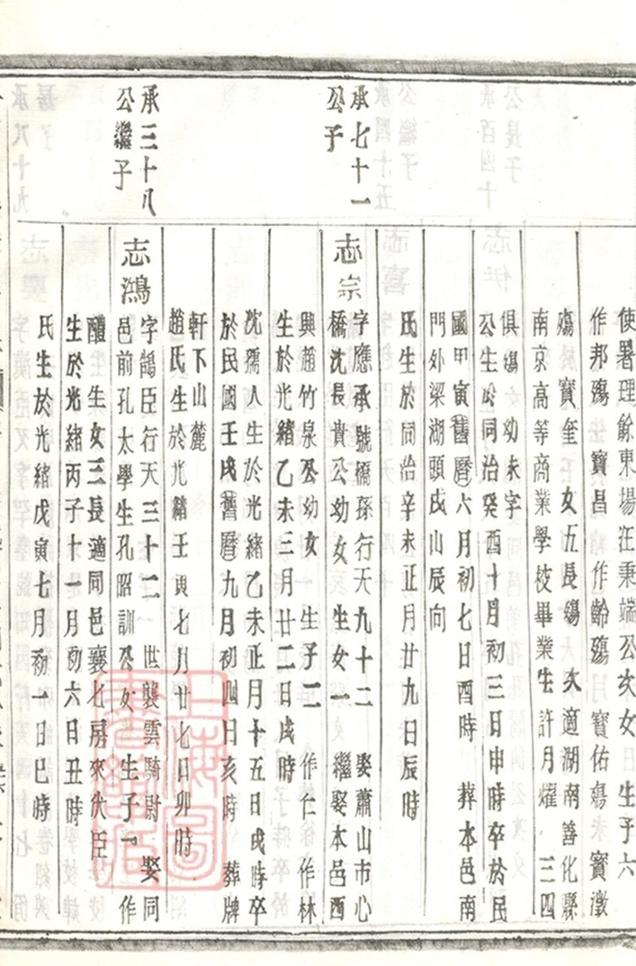 使署理餘東場在秉端公次女 生子六
作邦殤 寶昌 作齡殤 寶佑殤 寶澂
殤 寶奎 女五長殤 次適湖南善化縣
南京高等商業學校畢業生許月燿 三四
俱殤 幼未字
公生於同治癸酉十月初三日申時卒於民
國甲寅舊曆六月初七日酉時 葬本邑南
門外梁湖頭戌山辰向
氏生於同治辛未正月廿九日辰時
承七十一
公子
志宗
字應承號橋孫行天九十二 娶蕭山市心
橋沈長貴公幼女 生女一 繼娶本邑西
興趙竹泉公幼女 生子二 作仁 作林
生於光緒乙未三月廿二日戌時
沈孺人生於光緒乙未正月十五日戌時卒
於民國壬戌舊曆九月初四日亥時 葬牌
軒下山麓
趙氏生於光緒壬寅七月廿七日卯時
承三十八
公繼子
志鴻
字鵠臣行天三十二 世襲雲騎尉 娶同
邑前孔太學生孔昭訓公女 生子一 作
醴 生女三長適同邑襄七房來伏臣
生於光緒丙子十一月初六日丑時
氏生於光緒戊寅七月初一日巳時